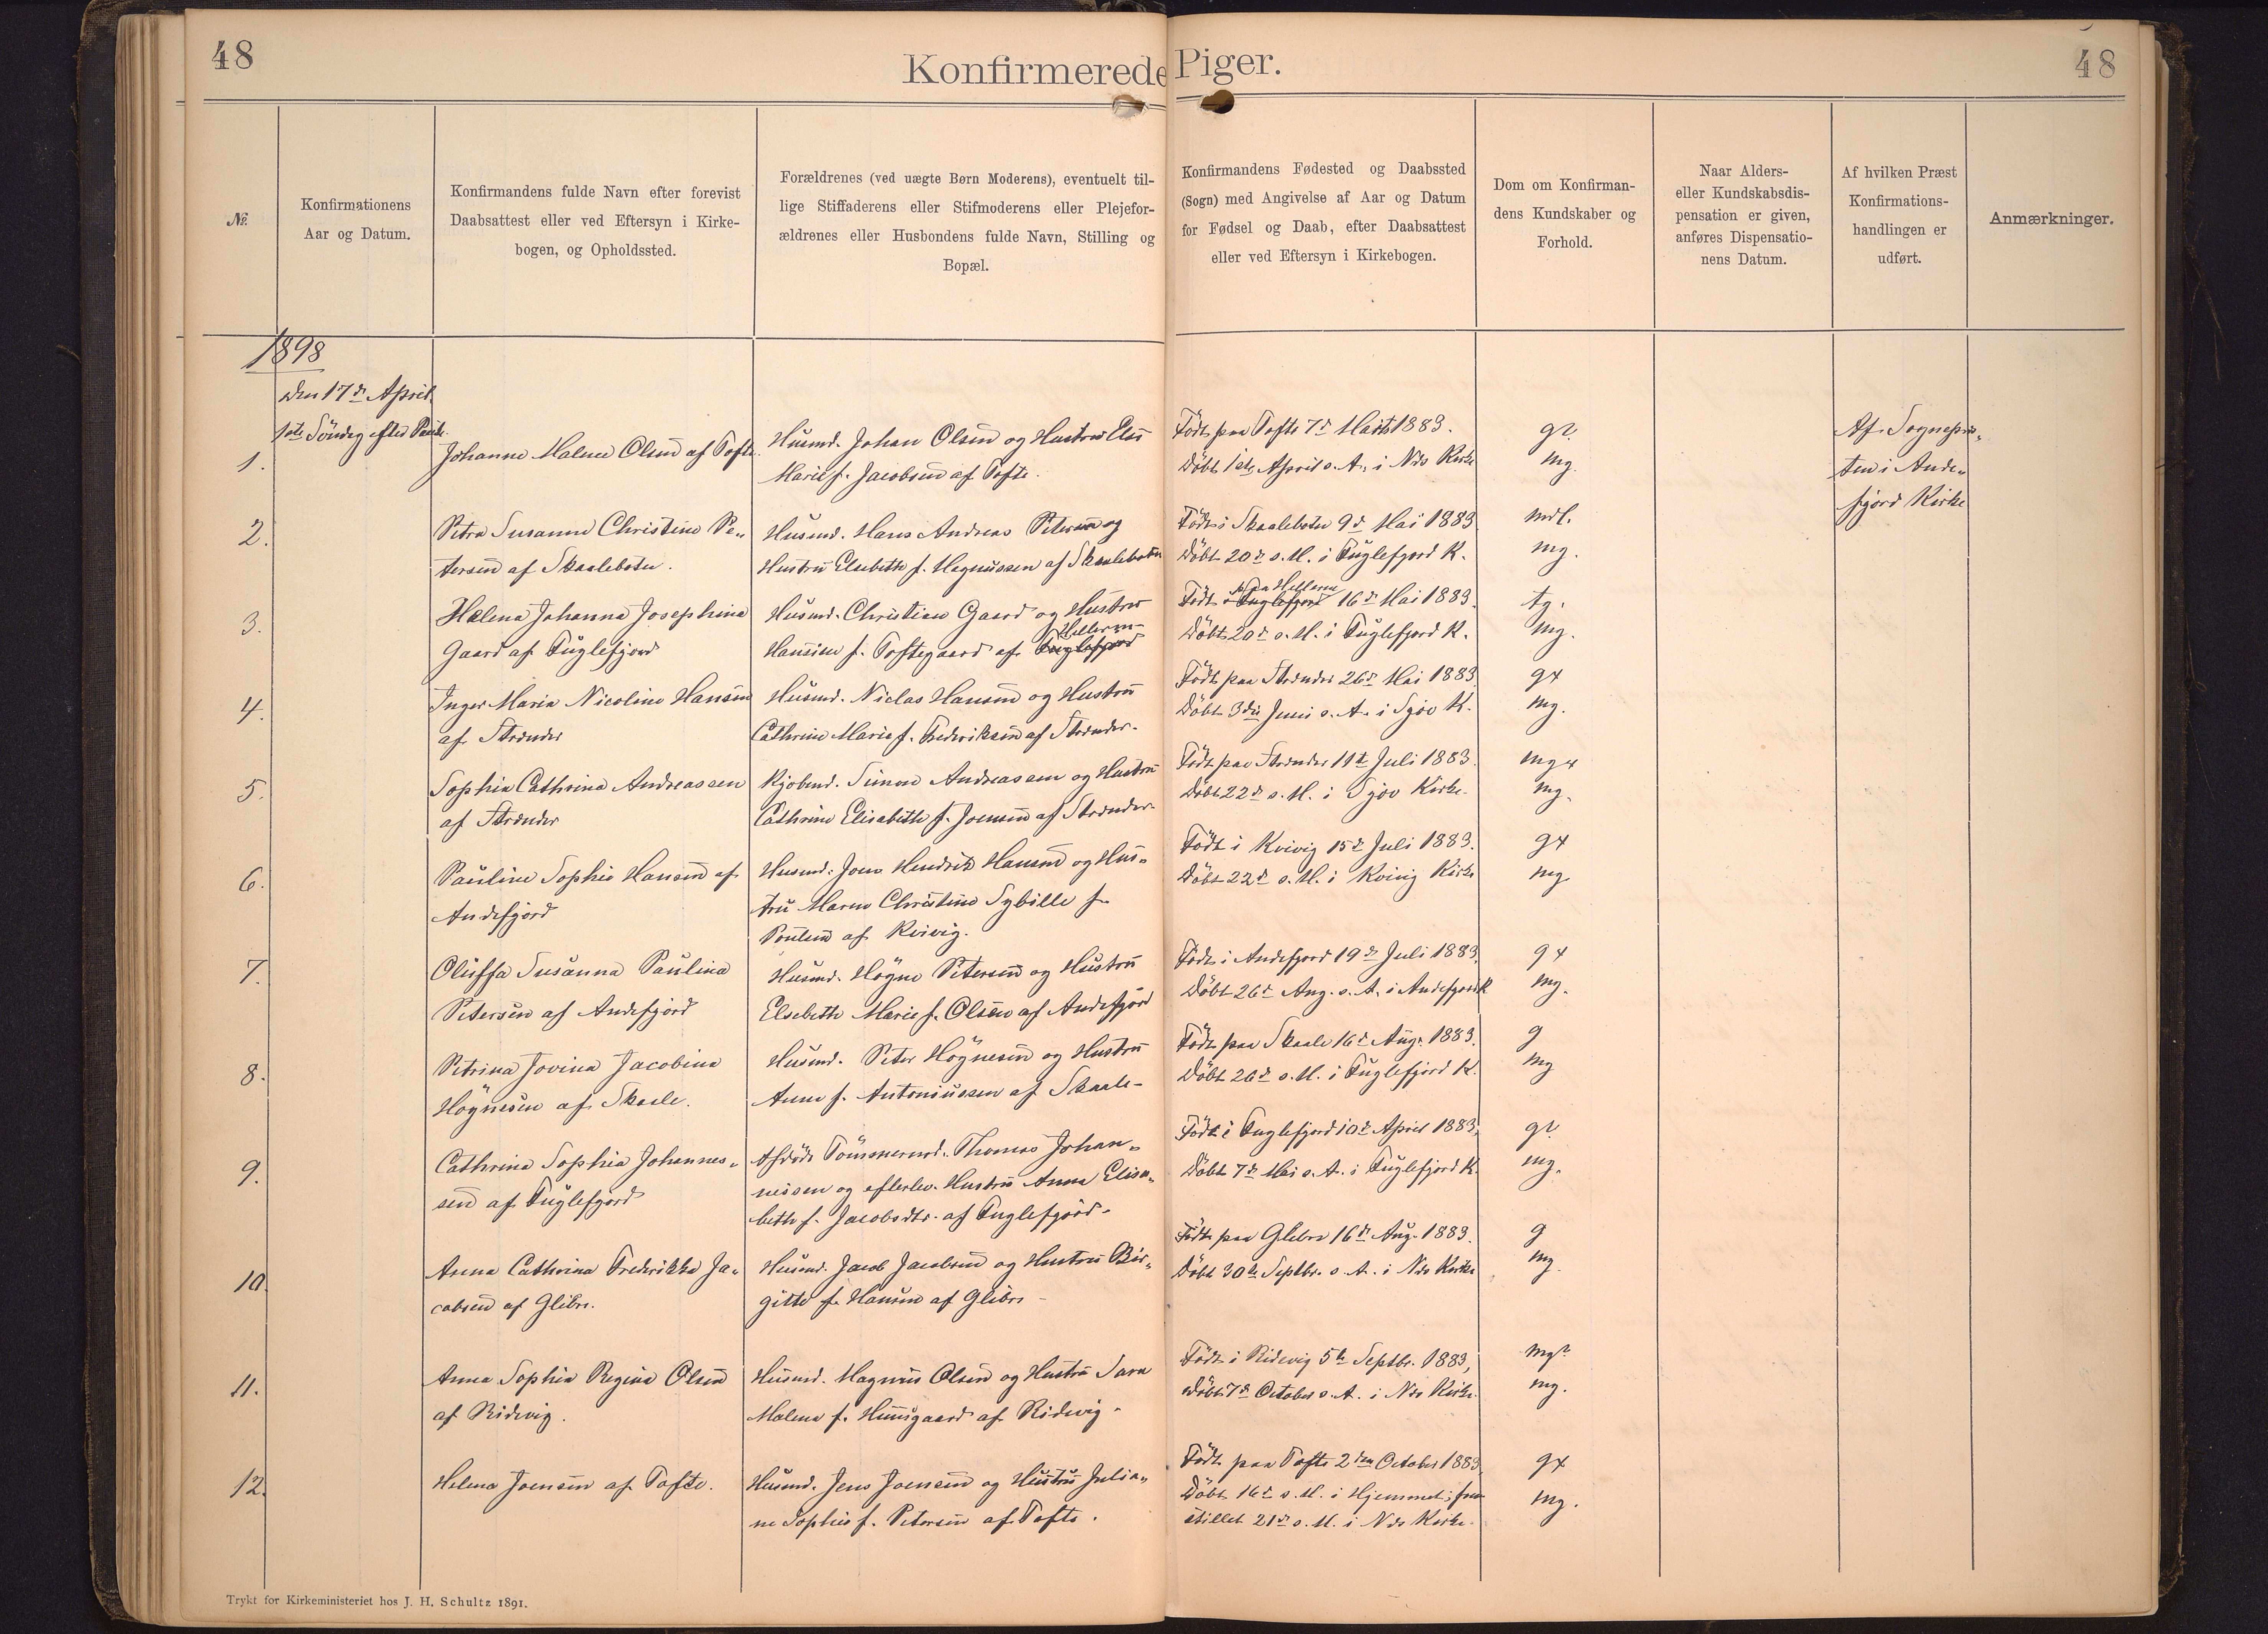 48
Konfirmerede Piger.
48
№
Konfirmationens
Aar og Datum.
Konfirmandens fulde Navn efter forevist
Daabsattest eller ved Eftersyn i Kirke-
bogen, og Opholdssted.
Forældrenes (ved uægte Børn Moderens), eventuelt til-
lige Stiffaderens eller Stifmoderens eller Plejefor-
ældrenes eller Husbondens fulde Navn, Stilling og
Bopæl.
Konfirmandens Fødested og Daabssted
(Sogn) med Angivelse af Aar og Datum
for Fødsel og Daab, efter Daabsattest
eller ved Eftersyn i Kirkebogen.
Dom om Konfirman-
dens Kundskaber og
Forhold.
Naar Alders-
eller Kundskabsdis-
pensation er given,
anføres Dispensatio-
nens Datum.
Af hvilken Præst
Konfirmations-
handlingen er
udført.
Anmærkninger.
1898
Den 17de April
1ste Söndag efter Paaske
1.
Johanne Malene Olsen af Tofte
Husmd. Johan Olsen og Hustru Else
Marie f. Jacobsen af Tofte.
Födt paa Tofte 7de Marts 1883.
Döbt 1ste April s. A. i Næs Kirke
g?
mg.
Af Sognepræs-
ten i Ande-
fjord Kirke
2.
Petra Susanna Christina Pe-
tersen af Skaalebotn.
Husmd. Hans Andreas Petersen og
Hustru Elsebeth f. Magnussen af Skaalebotn
Födt i Skaalebotn 9de Mai 1883
Döbt 20de s. M. i Fuglefjord K.
mdl.
mg.
3.
Helena Johanna Josephina
Gaard af Fuglefjord
Husmd. Christian Gaard og Hustru
Hellerne
Hansine f. Toftegaard af Fuglefjord
paa Hellerne
Födt i Fuglefjord 16de Mai 1883.
Döbt 20de s. M. i Fuglefjord K.
tg.
mg.
4.
Inger Maria Nicoline Hansen
af Strænder
Husmd. Niclas Hansen og Hustru
Cathrine Marie f. Frederiksen af Strænder.
Födt paa Strænder 26de Mai 1883
Döbt 3die Juni s. A. i Sjov K.
gx
mg.
5.
Sophia Cathrina Andreassen
af Strænder
Kjöbmd. Simon Andreassen og Hustru
Cathrine Elisabeth f. Joensen af Strænder
Födt paa Strænder 11te Juli 1883.
Döbt 22de s. M. i Sjov Kirke.
mgx
mg.
6.
Pauline Sophie Hansen af
Andefjord
Husmd. Joen Hendrik Hansen og Hus-
tru Maren Christine Sybille f.
Poulsen af Kvivig.
Födt i Kvivig 15de Juli 1883.
Döbt 22de s. M. i Kvivig Kirke
gx
mg
7.
Oluffa Susanna Paulina
Petersen af Andefjord
Husmd. Högne Petersen og Hustru
Elsebeth Marie f. Olsen af Andefjord
Födt i Andefjord 19de Juli 1883
Döbt 26de Aug. s. A. i Andefjord K
gx
mg.
8.
Petrina Jovina Jacobina
Högnesen af Skaale.
Husmd. Peter Högnesen og Hustru
Anna f. Antoniussen af Skaale-
Födt paa Skaale 16de Aug. 1883.
Döbt 26de s. M. i Fuglefjord K.
g
mg
9.
Cathrina Sophia Johannes-
sen af Fuglefjord
Afdöde Tömmermd. Thomas Johan-
nessen og efterlev. Hustru Anna Elisa-
beth f. Jacobsdtr. af Fuglefjord.
Födt i Fuglefjord 10de April 1883,
Döbt 7de Mai s. A. i Fuglefjord K.
g?
mg.
10.
Anna Cathrina Frederikka Ja-
cobsen af Glibre.
Husmd. Jacob Jacobsen og Hustru Bir-
gitte f. Hansen af Glibre
Födt paa Glibre 16de Aug. 1883.
Döbt 30te Septbr. s. A. i Næs Kirke
g
mg
11.
Anna Sophia Regina Olsen
af Ridevig.
Husmd. Magnus Olsen og Hustru Sara
Malena f. Huusgaard af Ridevig.
Födt i Ridevig 5te Septbr. 1883,
Döbt 7de October s. A. i Næs Kirke.
mg?
mg.
12.
Helena Joensen af Tofte.
Husmd. Jens Joensen og Hustru Julia-
ne Sophie f. Petersen af Tofte.
Födt paa Tofte 2den October 1883,
Döbt 16de s. M. i Hjemmet; frem-
stillet 21de s. M. i Næs Kirke.
gx
mg.
Trykt for Kirkeministeriet hos J. H. Schultz 1891.